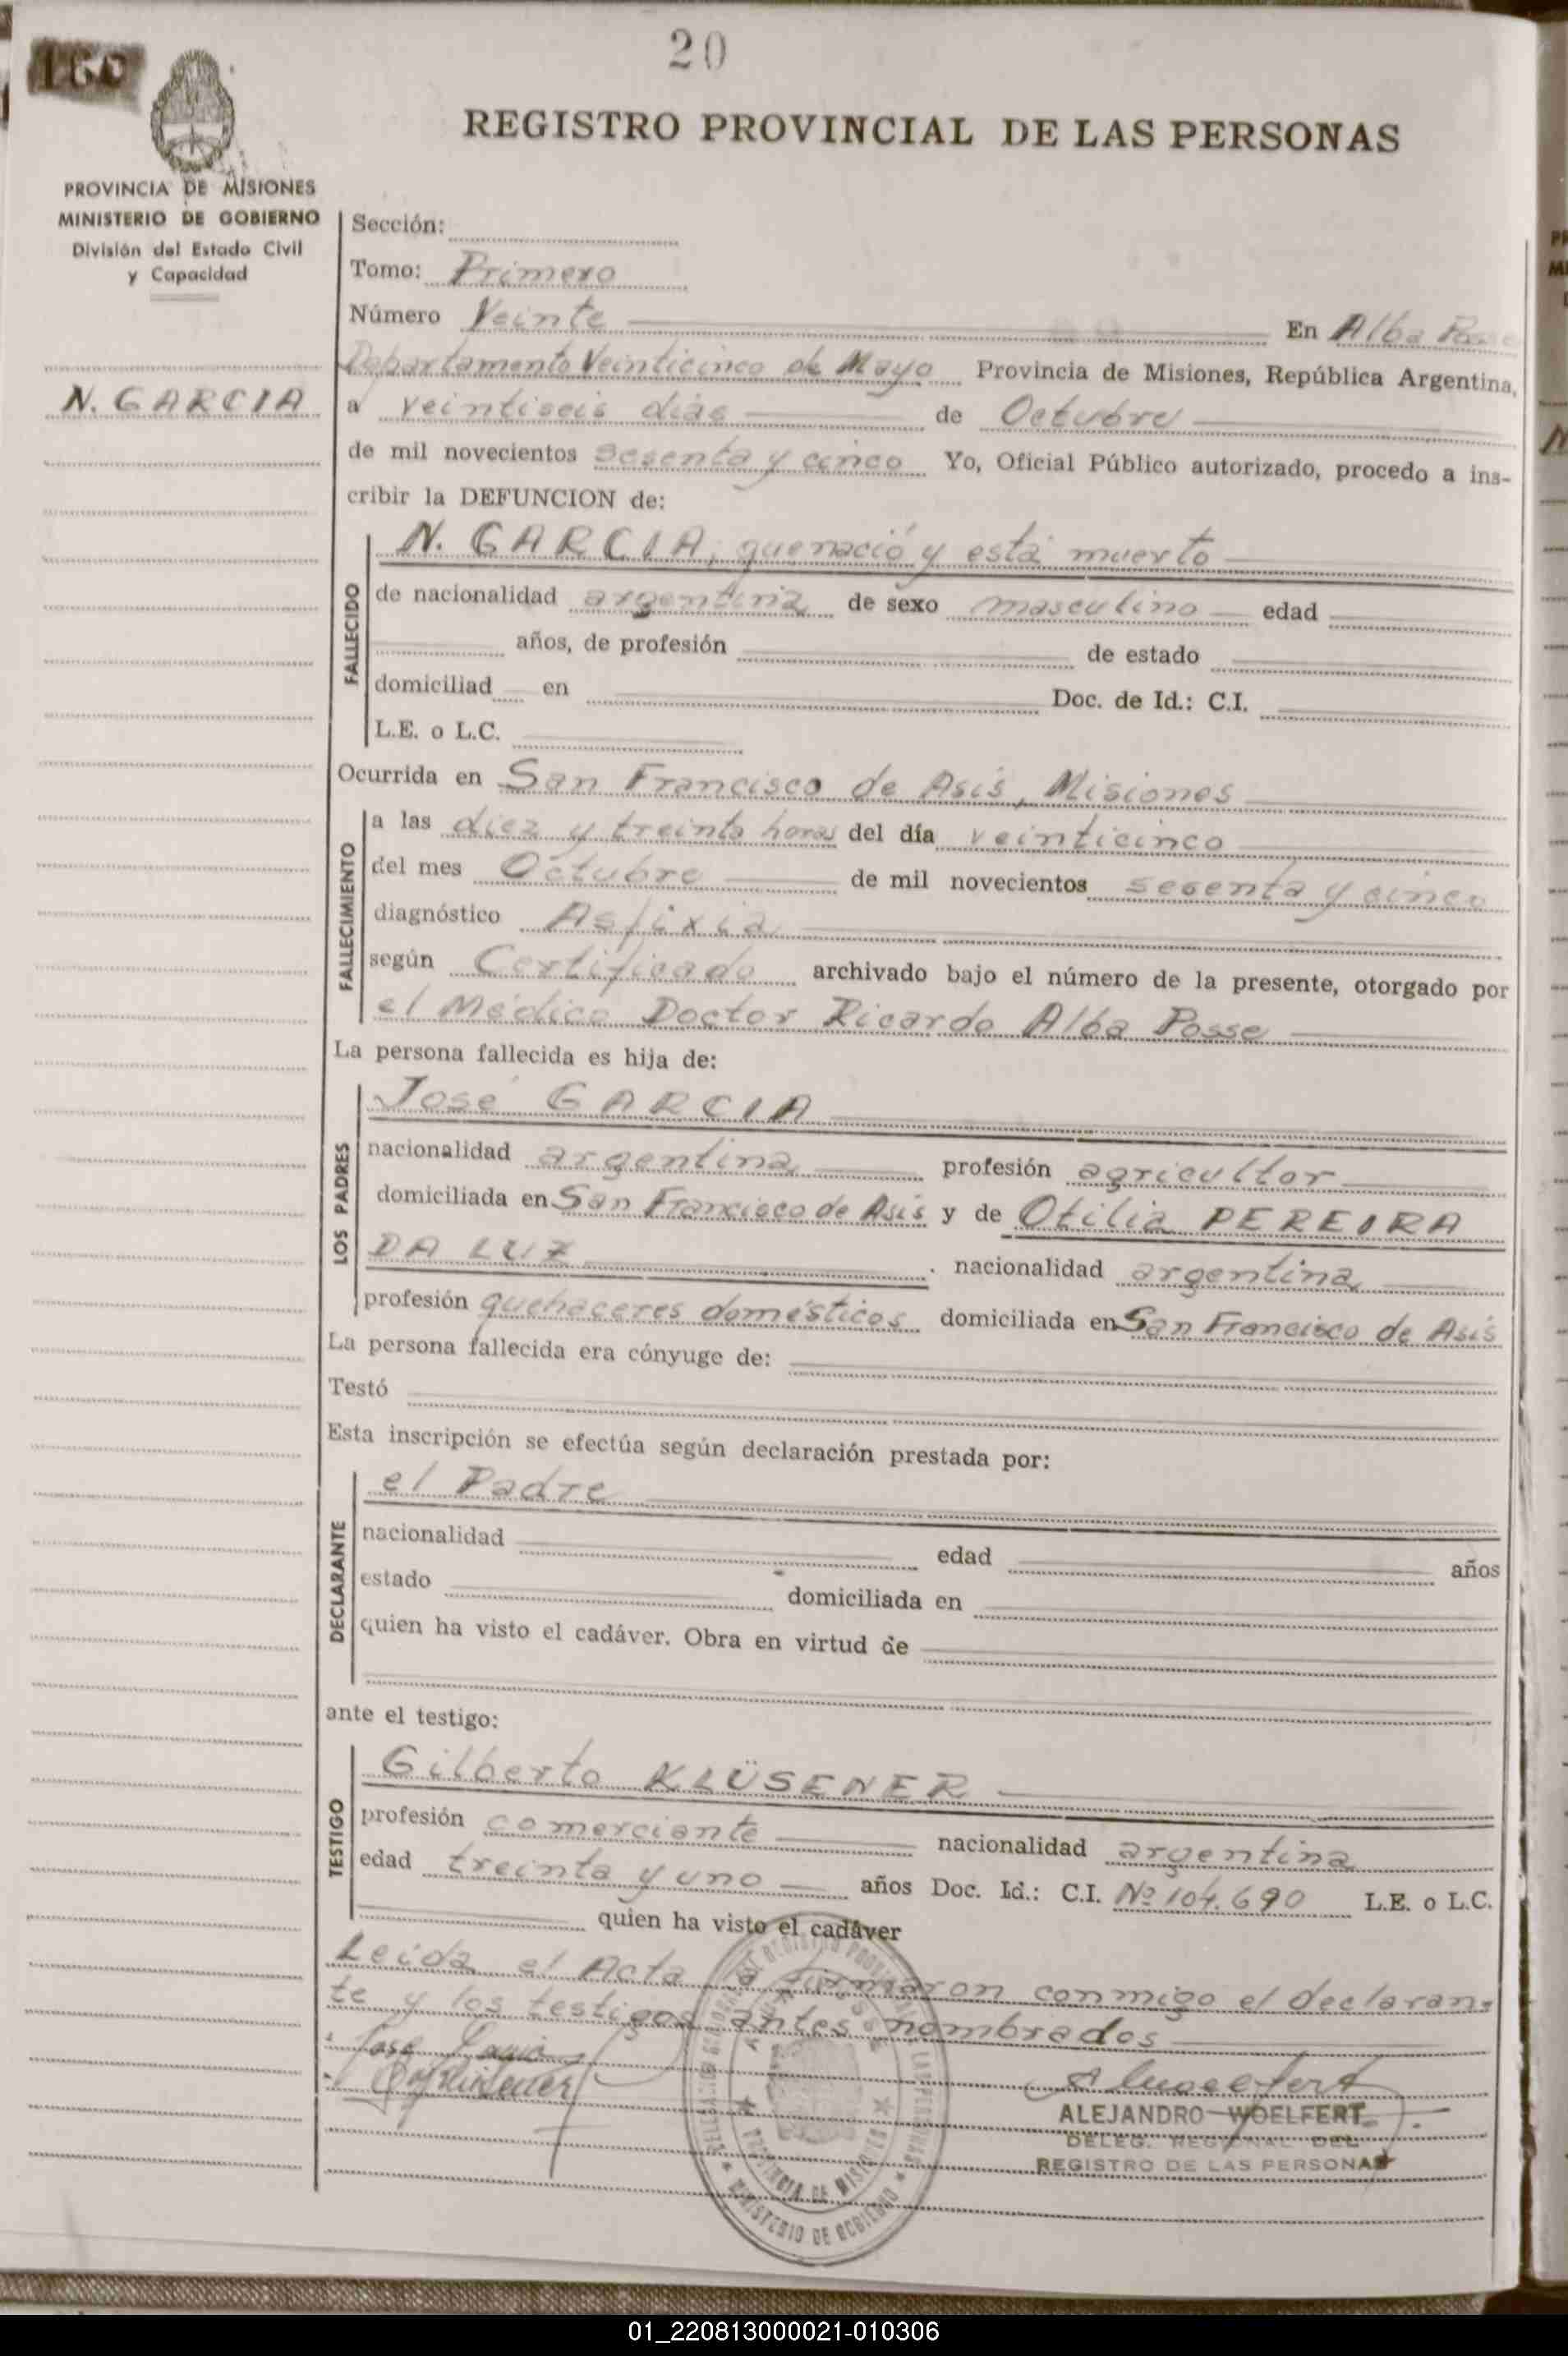 20
160
REGISTRO PROVINCIAL DE LAS PERSONAS
PROVINCIA DE MISIONES
MINISTERIO DE GOBIERNO
División del Estado Civil
y Capacidad
N. GARCIA
Sección:
Tomo: Primero
Número Veinte En Alba
Departamento Veinticinco de Mayo Provincia de Misiones, República Argentina,
a veintiseis dias de Octubre
de mil novecientos sesenta y cinco Yo, Oficial Público autorizado, procedo a ins-
cribir la DEFUNCION de:
FALLECIDO
N. GARCIA, que nació y está muerto
de nacionalidad argentina de sexo masculino edad
años, de profesión de estado
domiciliad en Doc. de Id.: C.I.
L.E. o L.C.
Ocurrida en San Francisco de Asis, Misiones
FALLECIMIENTO
a las diez y treinta horas del día veinticinco
del mes Octubre de mil novecientos sesenta y cinco
diagnóstico Asfixia
según Certificado archivado bajo el número de la presente, otorgado por
el Médico Doctor Ricardo Alba Posse
La persona fallecida es hija de:
LOS PADRES
José GARCIA
nacionalidad argentina profesión agricultor
domiciliada en San Francisco de Asis y de Otilia PEREIRA
DA LUZ . nacionalidad argentina
profesión quehaceres domésticos domiciliada en San Francisco de Asis
La persona fallecida era cónyuge de:
Testó
Esta inscripción se efectúa según declaración prestada por:
DECLARANTE
el Padre
nacionalidad edad años
estado domiciliada en
quien ha visto el cadáver. Obra en virtud de
ante el testigo:
TESTIGO
Gilberto KLÜSENER
profesión comerciante nacionalidad argentina
edad treinta y uno años Doc. Id.: C.I. Nº 104.690 L.E. o L.C.
quien ha visto el cadáver
Leida el Acta la firmaron conmigo el declaran-
te y los testigos antes nombrados
ALEJANDRO WOELFERT
DELEG. REGIONAL DEL
REGISTRO DE LAS PERSONAS
PROVINCIA DE MISIONES
MINISTERIO DE GOBIERNO
01_220813000021-010306